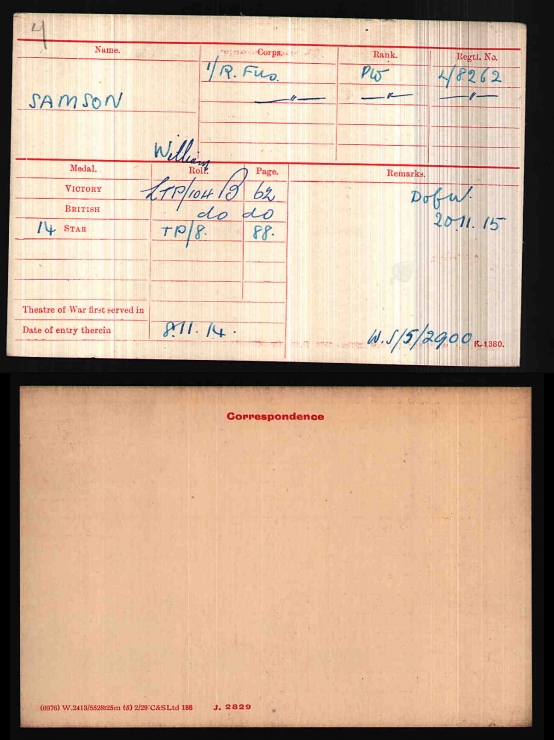 4
Name. Corps. Rank. Regtl. No.
1/R. Fus. Pte L/8262
SAMSON —"— —"— —"—
William
Medal. Roll. Page. Remarks.
VICTORY LTP/104 B 62 D of W.
BRITISH do do 20.11.15
14 STAR TP/8. 88.
Theatre of War first served in
Date of entry therein 8.11.14. W.S/5/2900 K.1380.
Correspondence
(6976) W.2413/5528 125m (5) 2/29 C&S Ltd 186 J. 2829